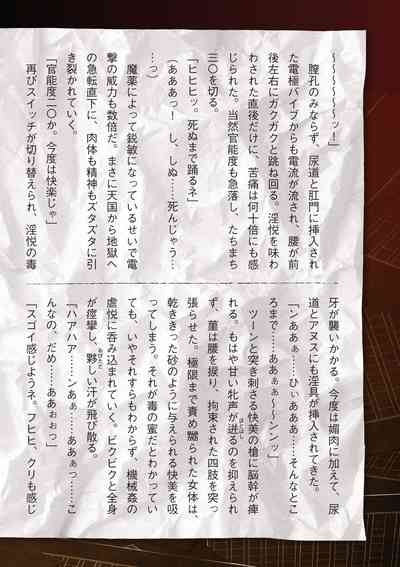 ～～～～～～ッ！」
膣孔のみならず、尿道と肛門に挿入され
た電極バイブからも電流が流され、腰が前
後左右にガクガクと跳ね回る。淫悦を味わ
わされた直後だけに、苦痛は何十倍にも感
じられた。当然官能度も急落し、たちまち
三〇を切る。
「ヒヒヒッ。死ぬまで踊るネ」
（あああっ！　し、しぬ……死んじゃう…
…っ）
魔薬によって鋭敏になっているせいで電
撃の威力も数倍だ。まさに天国から地獄へ
の急転直下に、肉体も精神もズタズタに引
き裂かれていく。
「官能度二〇か。今度は快楽じゃ」
再びスイッチが切り替えられ、淫悦の毒
牙が襲いかかる。今度は媚肉に加えて、尿
道とアヌスにも淫具が挿入されてきた。
「ンああぁ……ひぃあああ……そんなとこ
ろまで……ああぁぁ～～ンンッ」
ツーンと突き刺さる快美の槍に脳幹が痺
れる。もはや甘い牝声が迸るのを抑えられ
ず、菫は腰を捩り、拘束された四肢を突っ
張らせた。極限まで責め嬲られた女体は、
乾ききった砂のように与えられる快美を吸
ってしまう。それが毒の蜜だとわかってい
ても、いやそれすらもわからず、機械姦の
虐悦に呑み込まれていく。ビクビクと全身
が痙攣し、夥しい汗が飛び散る。
「ハアハア……ンあぁ……ああぁっ……こ
んなの、だめ……ああぉぉっ」
「スゴイ感じようネ。フヒヒ、クリも感じ